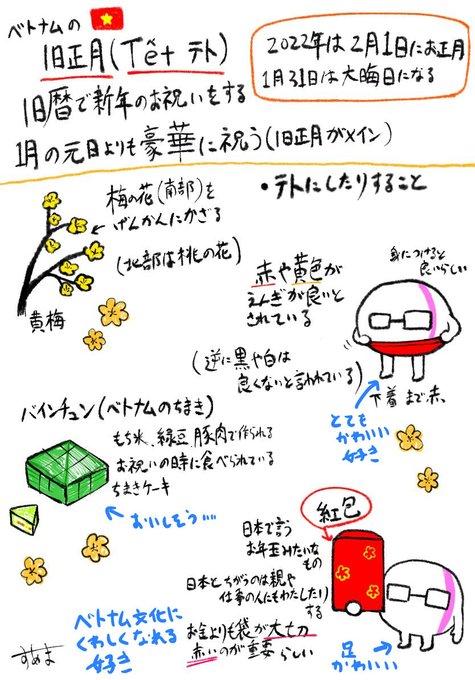 ベトナムの
旧正月(Tết テト)
2022年は2月1日にお正月
1月31日は大晦日になる
旧暦で新年のお祝いをする
1月の元日よりも豪華に祝う(旧正月がメイン)
・テトにしたりすること
梅の花(南部)を
げんかんにかざる
(北部は桃の花)
黄梅
赤や黄色が
えんぎが良いと
されている
(逆に黒や白は
良くないと言われている)
身につけると
良いらしい
下着まで赤
とても
かわいい
好き
バインチュン(ベトナムのちまき)
もち米、緑豆、豚肉で作られる
お祝いの時に食べられている
ちまきケーキ
おいしそう…
紅包
日本で言う
お年玉みたいな
もの
日本とちがうのは親や
仕事の人にもわたしたり
する
お金よりも袋が大切
赤いのが重要らしい
足
かわいい
ベトナム文化に
くわしくなれる
好き